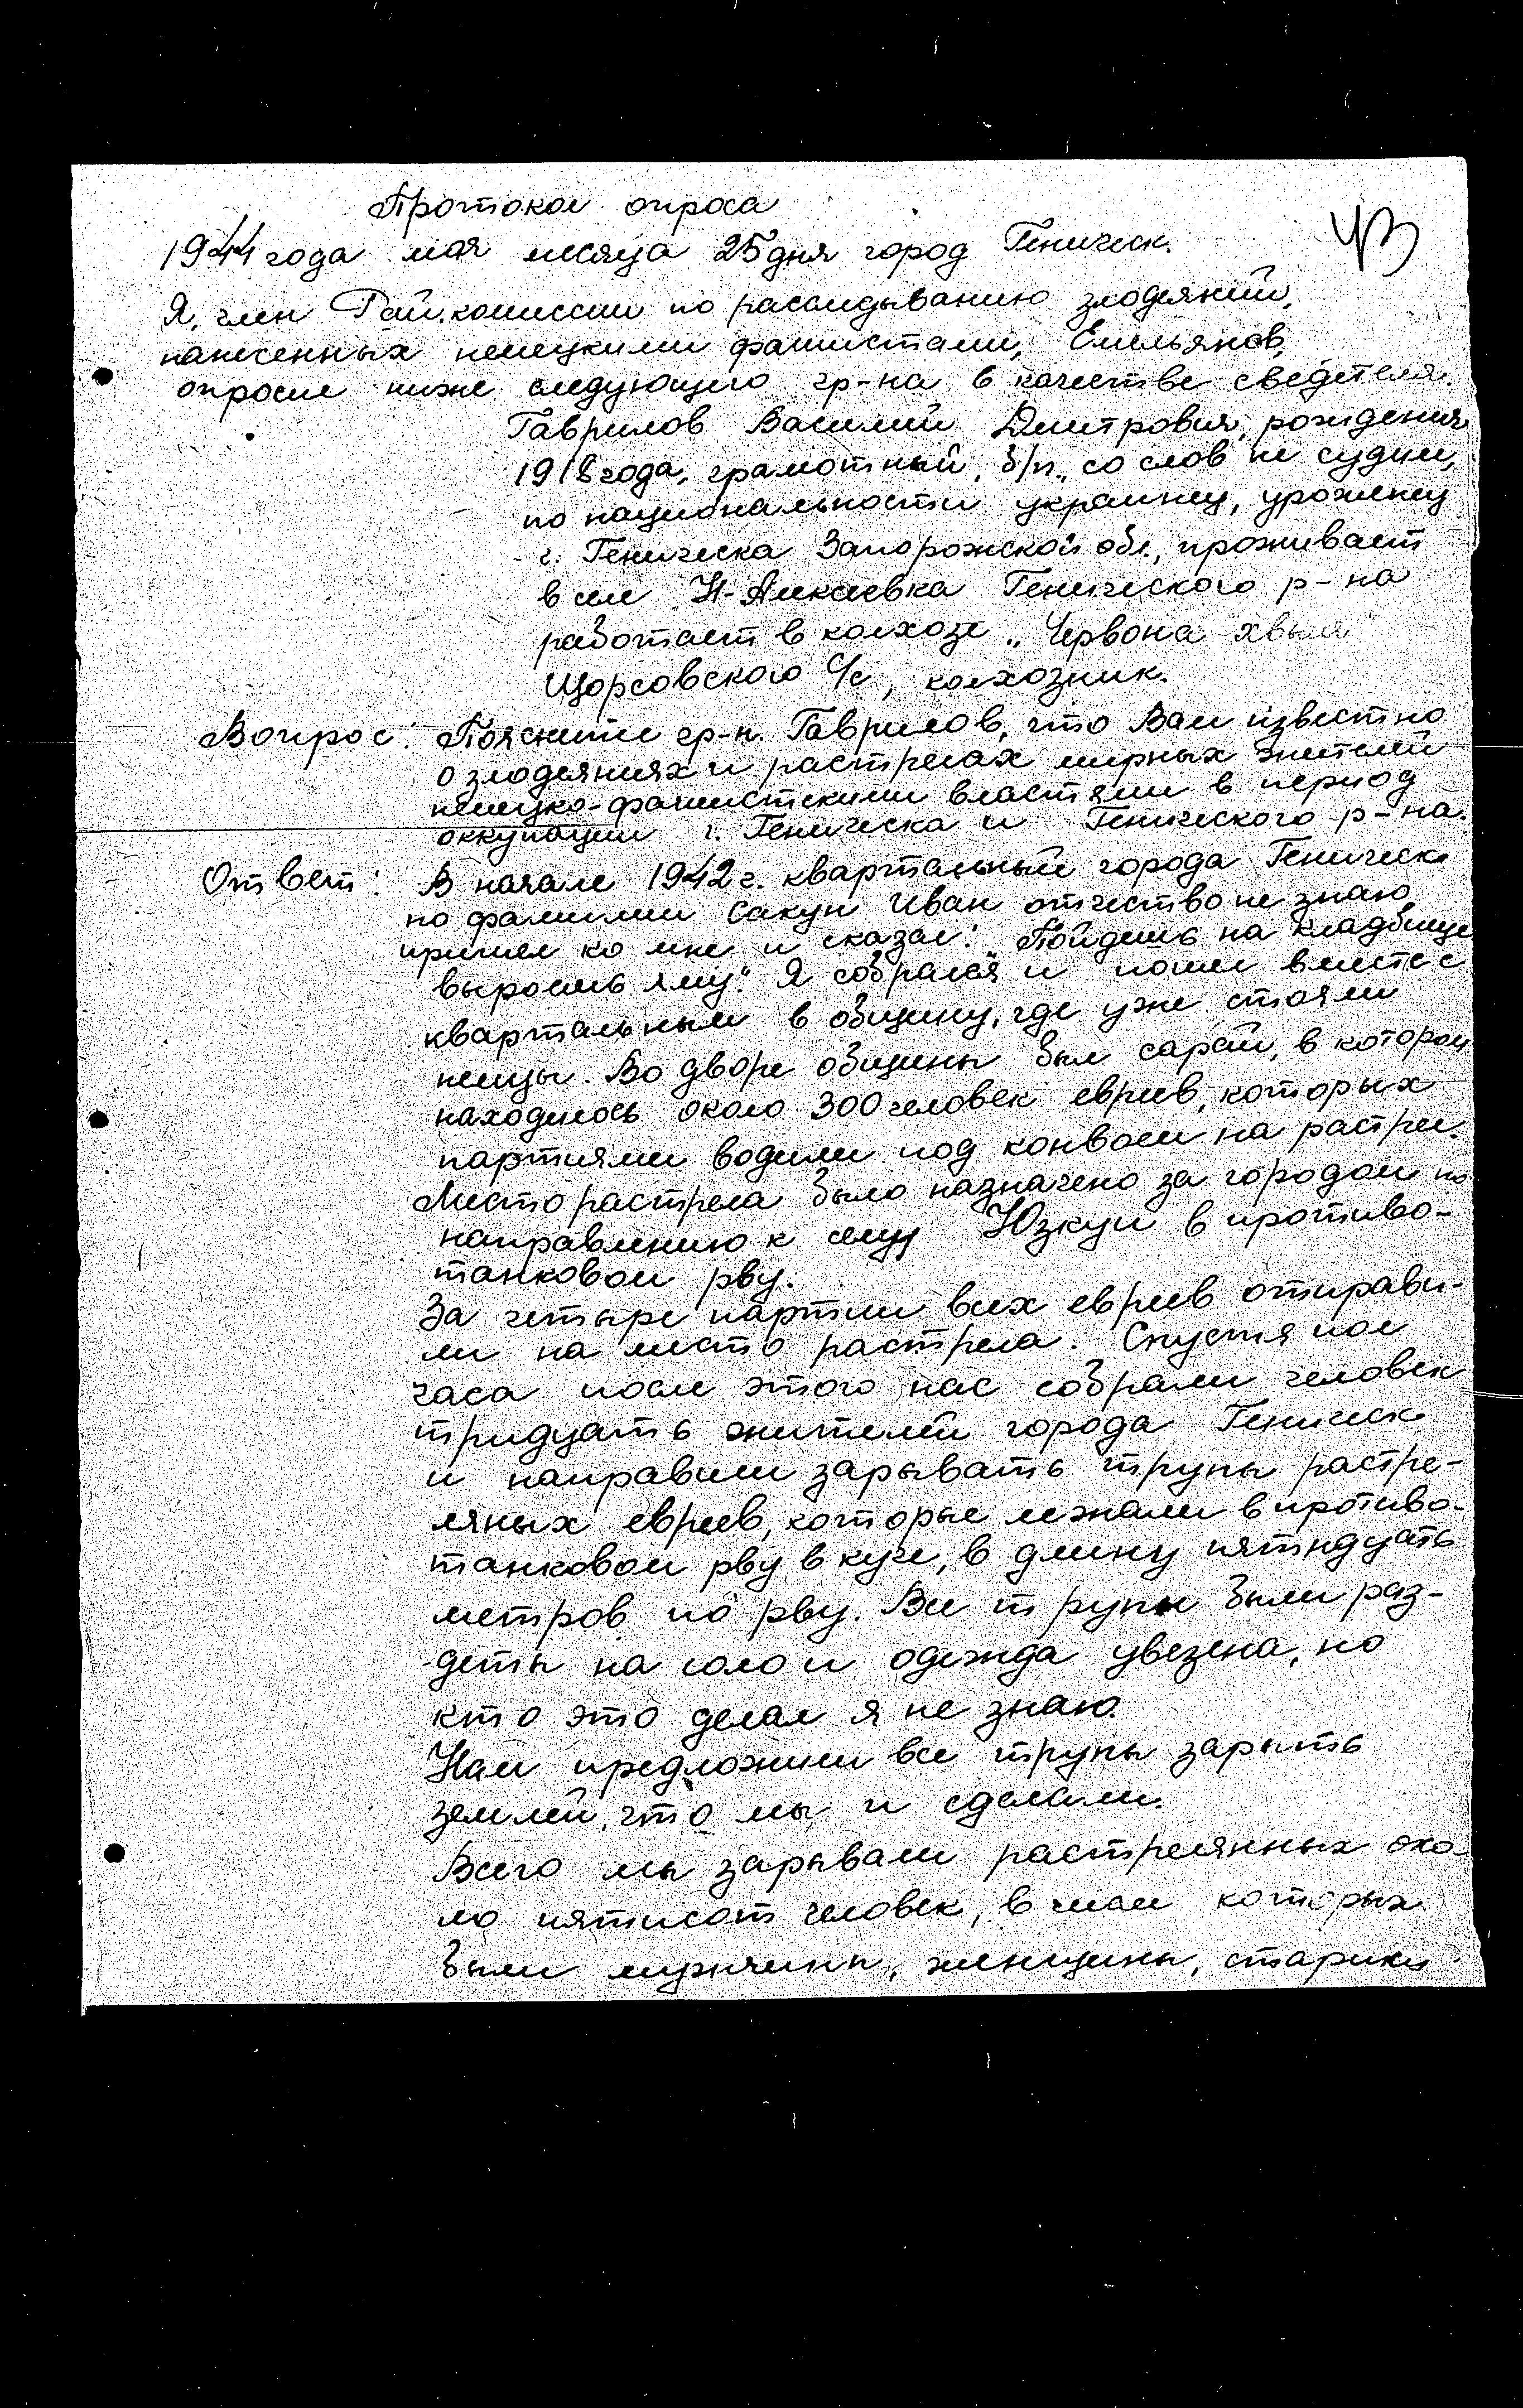 Протокол опроса
43
1944 года мая месяца 25 дня город Геническ.
Я, член Рай.комиссии по расследыванию злодеяний,
нанесенных немецкими фашистами, Емельянов,
опросил ниже следующего гр-на в качестве сведетеля.
Гаврилов Василий Дмитрович, рождения
1918 года, грамотный, б/п., со слов не судим,
по национальности украинец, уроженец
г. Геническа Запорожской обл., проживает
в селе Н-Алексеевка Генического р-на
работает в колхозе „Червона хвыля"
Щорсовского С/с, колхозник.
Вопрос: Поясните гр-н. Гаврилов, что Вам известно
о злодеяниях и растрелах мирных жителей
немецко-фашистскими властями в период
оккупации г. Геническа и Генического р-на.
Ответ: В начале 1942 г. квартальный города Геническ
по фамилии Сакун Иван отчество не знаю
пришел ко мне и сказал: „Пойдешь на кладбище
выроешь яму." Я собрался и пошел вместе с
квартальным в общину, где уже стояли
немцы. Во дворе общины был сарай, в котором
находилось около 300 человек евреев, которых
партиями водили под конвоем на растрел.
Место растрела было назначено за городом по
направлению к селу Юзкуи в противо-
танковом рву.
За четыре партии всех евреев отправи-
ли на место растрела. Спустя пол
часа после этого нас собрали человек
тридцать жителей города Геническ
и направили зарывать трупы растре-
ляных евреев, которые лежали в противо-
танковом рву в куче, в длину пятндцать
метров по рву. Все трупы были раз-
деты на голо и одежда увезена, но
кто это делал я не знаю.
Нам предложили все трупы зарыть
землей, что мы и сделали.
Всего мы зарывали растрелянных око-
ло пятисот человек, в числе которых
были мужчины, женщины, старики